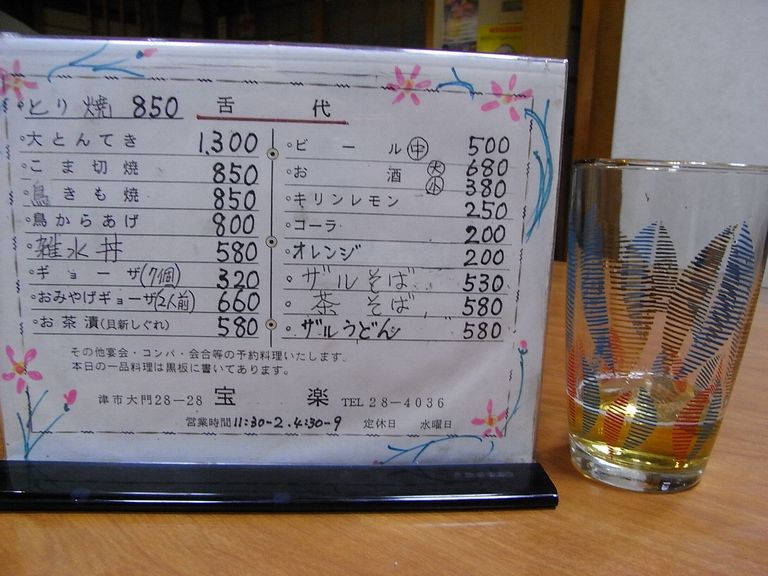 とり焼 850
舌代
大とんてき 1,300
こま切焼 850
鳥きも焼 850
鳥からあげ 800
雑水丼 580
ギョーザ(7個) 320
おみやげギョーザ(2人前) 660
お茶漬(貝新しぐれ) 580
ビール㊥ 500
お酒 大 680
小 380
キリンレモン 250
コーラ 200
オレンジ 200
ザルそば 530
茶そば 580
ザルうどん 580
その他宴会・コンパ・会合等の予約料理いたします。
本日の一品料理は黒板に書いてあります。
津市大門28-28 宝楽 TEL 28-4036
営業時間11:30-2.4:30-9 定休日 水曜日